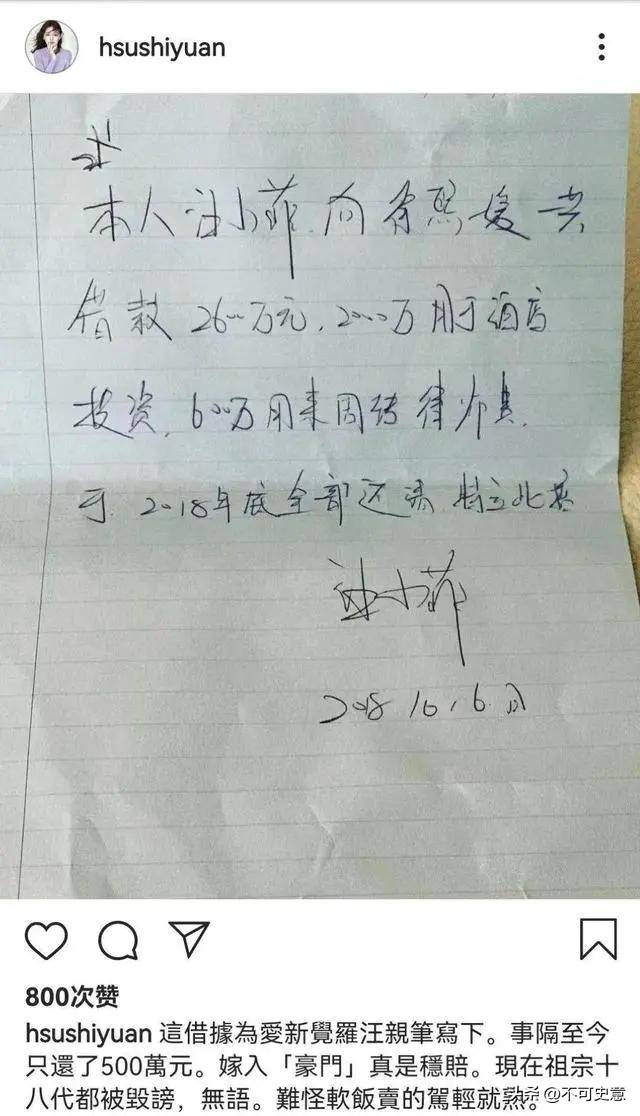 hsushiyuan
本人汪小菲.向徐熙媛共
借款2600万元.2000万用于酒店
投资.600万用来周转律师费.
于2018年底全部还清.特立此据
汪小菲
2018 10.6.日
800次赞
hsushiyuan 這借據為愛新覺羅汪親筆寫下。事隔至今
只還了500萬元。嫁入「豪門」真是穩賠。現在祖宗十
八代都被毀謗，無語。難怪軟飯賣的駕輕就熟。
头条 @不可史意